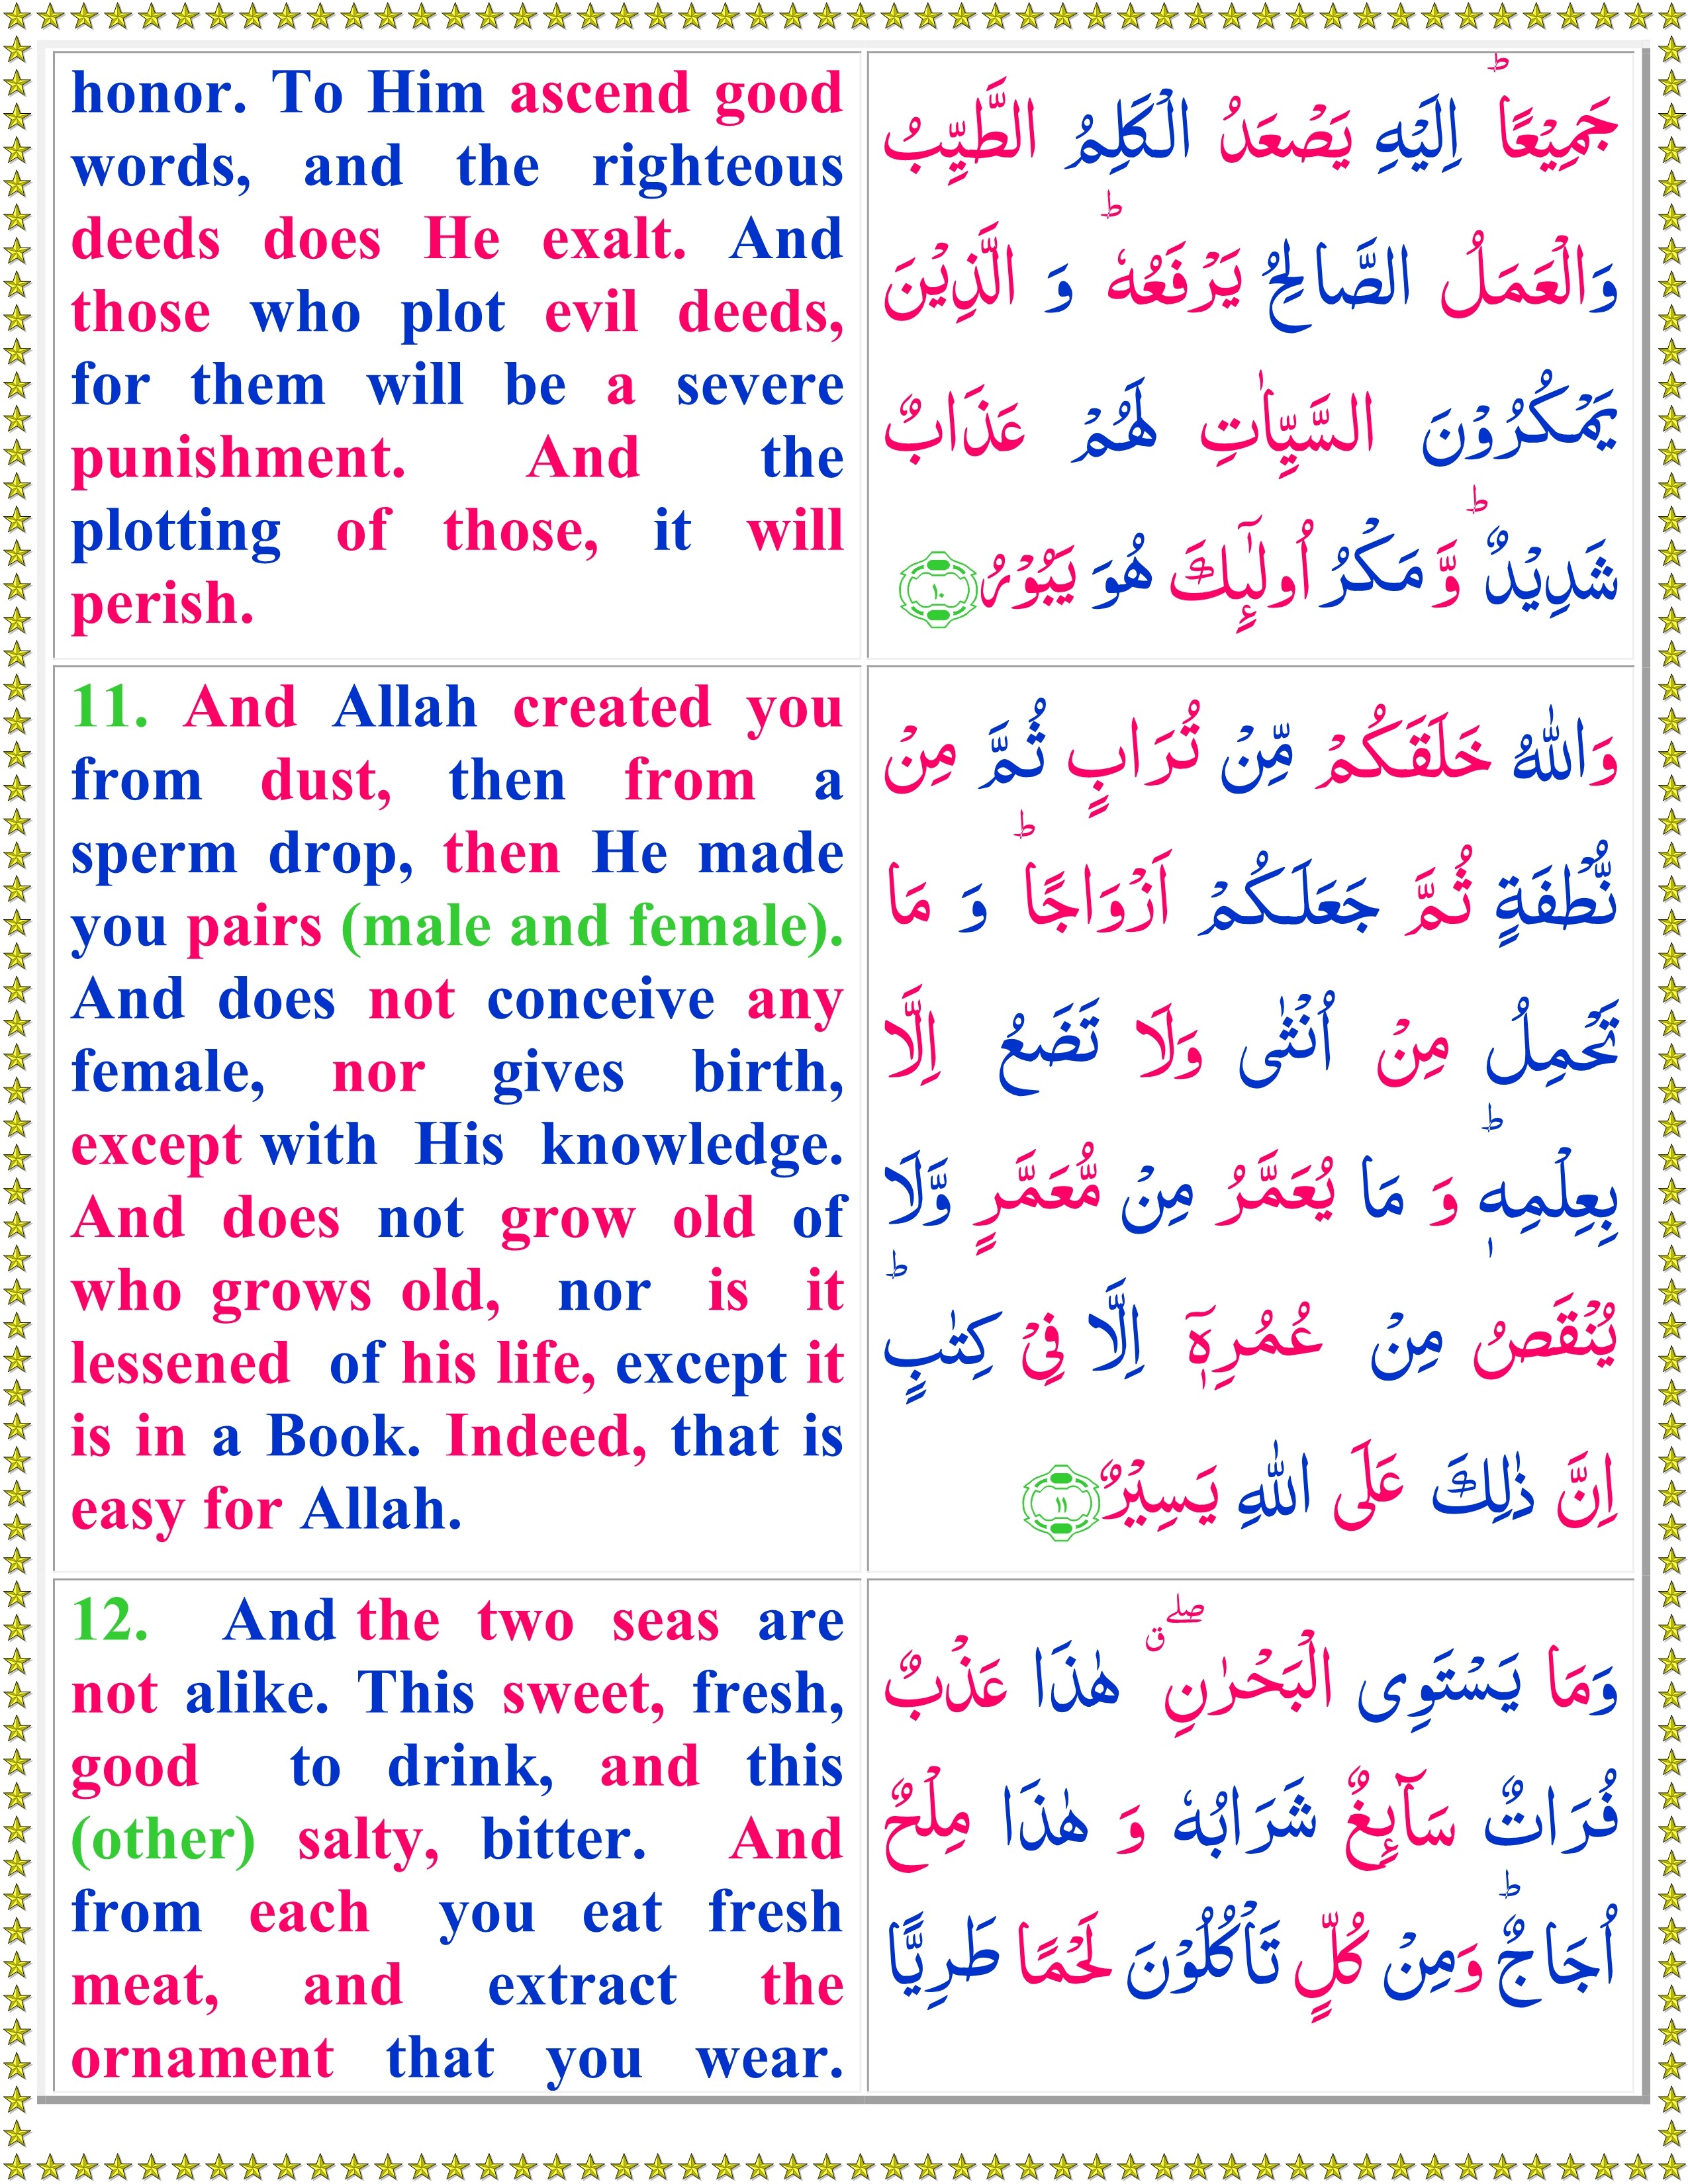 honor. To Him ascend good
words, and the righteous
deeds does He exalt. And
those who plot evil deeds,
for them will be a severe
punishment. And the
plotting of those, it will
perish.
جَمِيۡعًا ؕ اِلَيۡهِ يَصۡعَدُ الۡـكَلِمُ الطَّيِّبُ
وَالۡعَمَلُ الصَّالِحُ يَرۡفَعُهٗ ؕ وَ الَّذِيۡنَ
يَمۡكُرُوۡنَ السَّيِّاٰتِ لَهُمۡ عَذَابٌ
شَدِيۡدٌ ؕ وَّ مَكۡرُ اُولٰٓٮِٕكَ هُوَ يَبُوۡرُ ۱۰
11. And Allah created you
from dust, then from a
sperm drop, then He made
you pairs (male and female).
And does not conceive any
female, nor gives birth,
except with His knowledge.
And does not grow old of
who grows old, nor is it
lessened of his life, except it
is in a Book. Indeed, that is
easy for Allah.
وَاللّٰهُ خَلَقَكُمۡ مِّنۡ تُرَابٍ ثُمَّ مِنۡ
نُّطۡفَةٍ ثُمَّ جَعَلَـكُمۡ اَزۡوَاجًا ؕ وَ مَا
تَحۡمِلُ مِنۡ اُنۡثٰى وَلَا تَضَعُ اِلَّا
بِعِلۡمِهٖ ؕ وَ مَا يُعَمَّرُ مِنۡ مُّعَمَّرٍ وَّلَا
يُنۡقَصُ مِنۡ عُمُرِهٖۤ اِلَّا فِىۡ كِتٰبٍ ؕ
اِنَّ ذٰلِكَ عَلَى اللّٰهِ يَسِيۡرٌ ۱۱
12. And the two seas are
not alike. This sweet, fresh,
good to drink, and this
(other) salty, bitter. And
from each you eat fresh
meat, and extract the
ornament that you wear.
وَمَا يَسۡتَوِى الۡبَحۡرٰنِ ۖ ق هٰذَا عَذۡبٌ
فُرَاتٌ سَآٮِٕغٌ شَرَابُهٗ وَ هٰذَا مِلۡحٌ
اُجَاجٌ ؕ وَمِنۡ كُلٍّ تَاۡكُلُوۡنَ لَحۡمًا طَرِيًّا